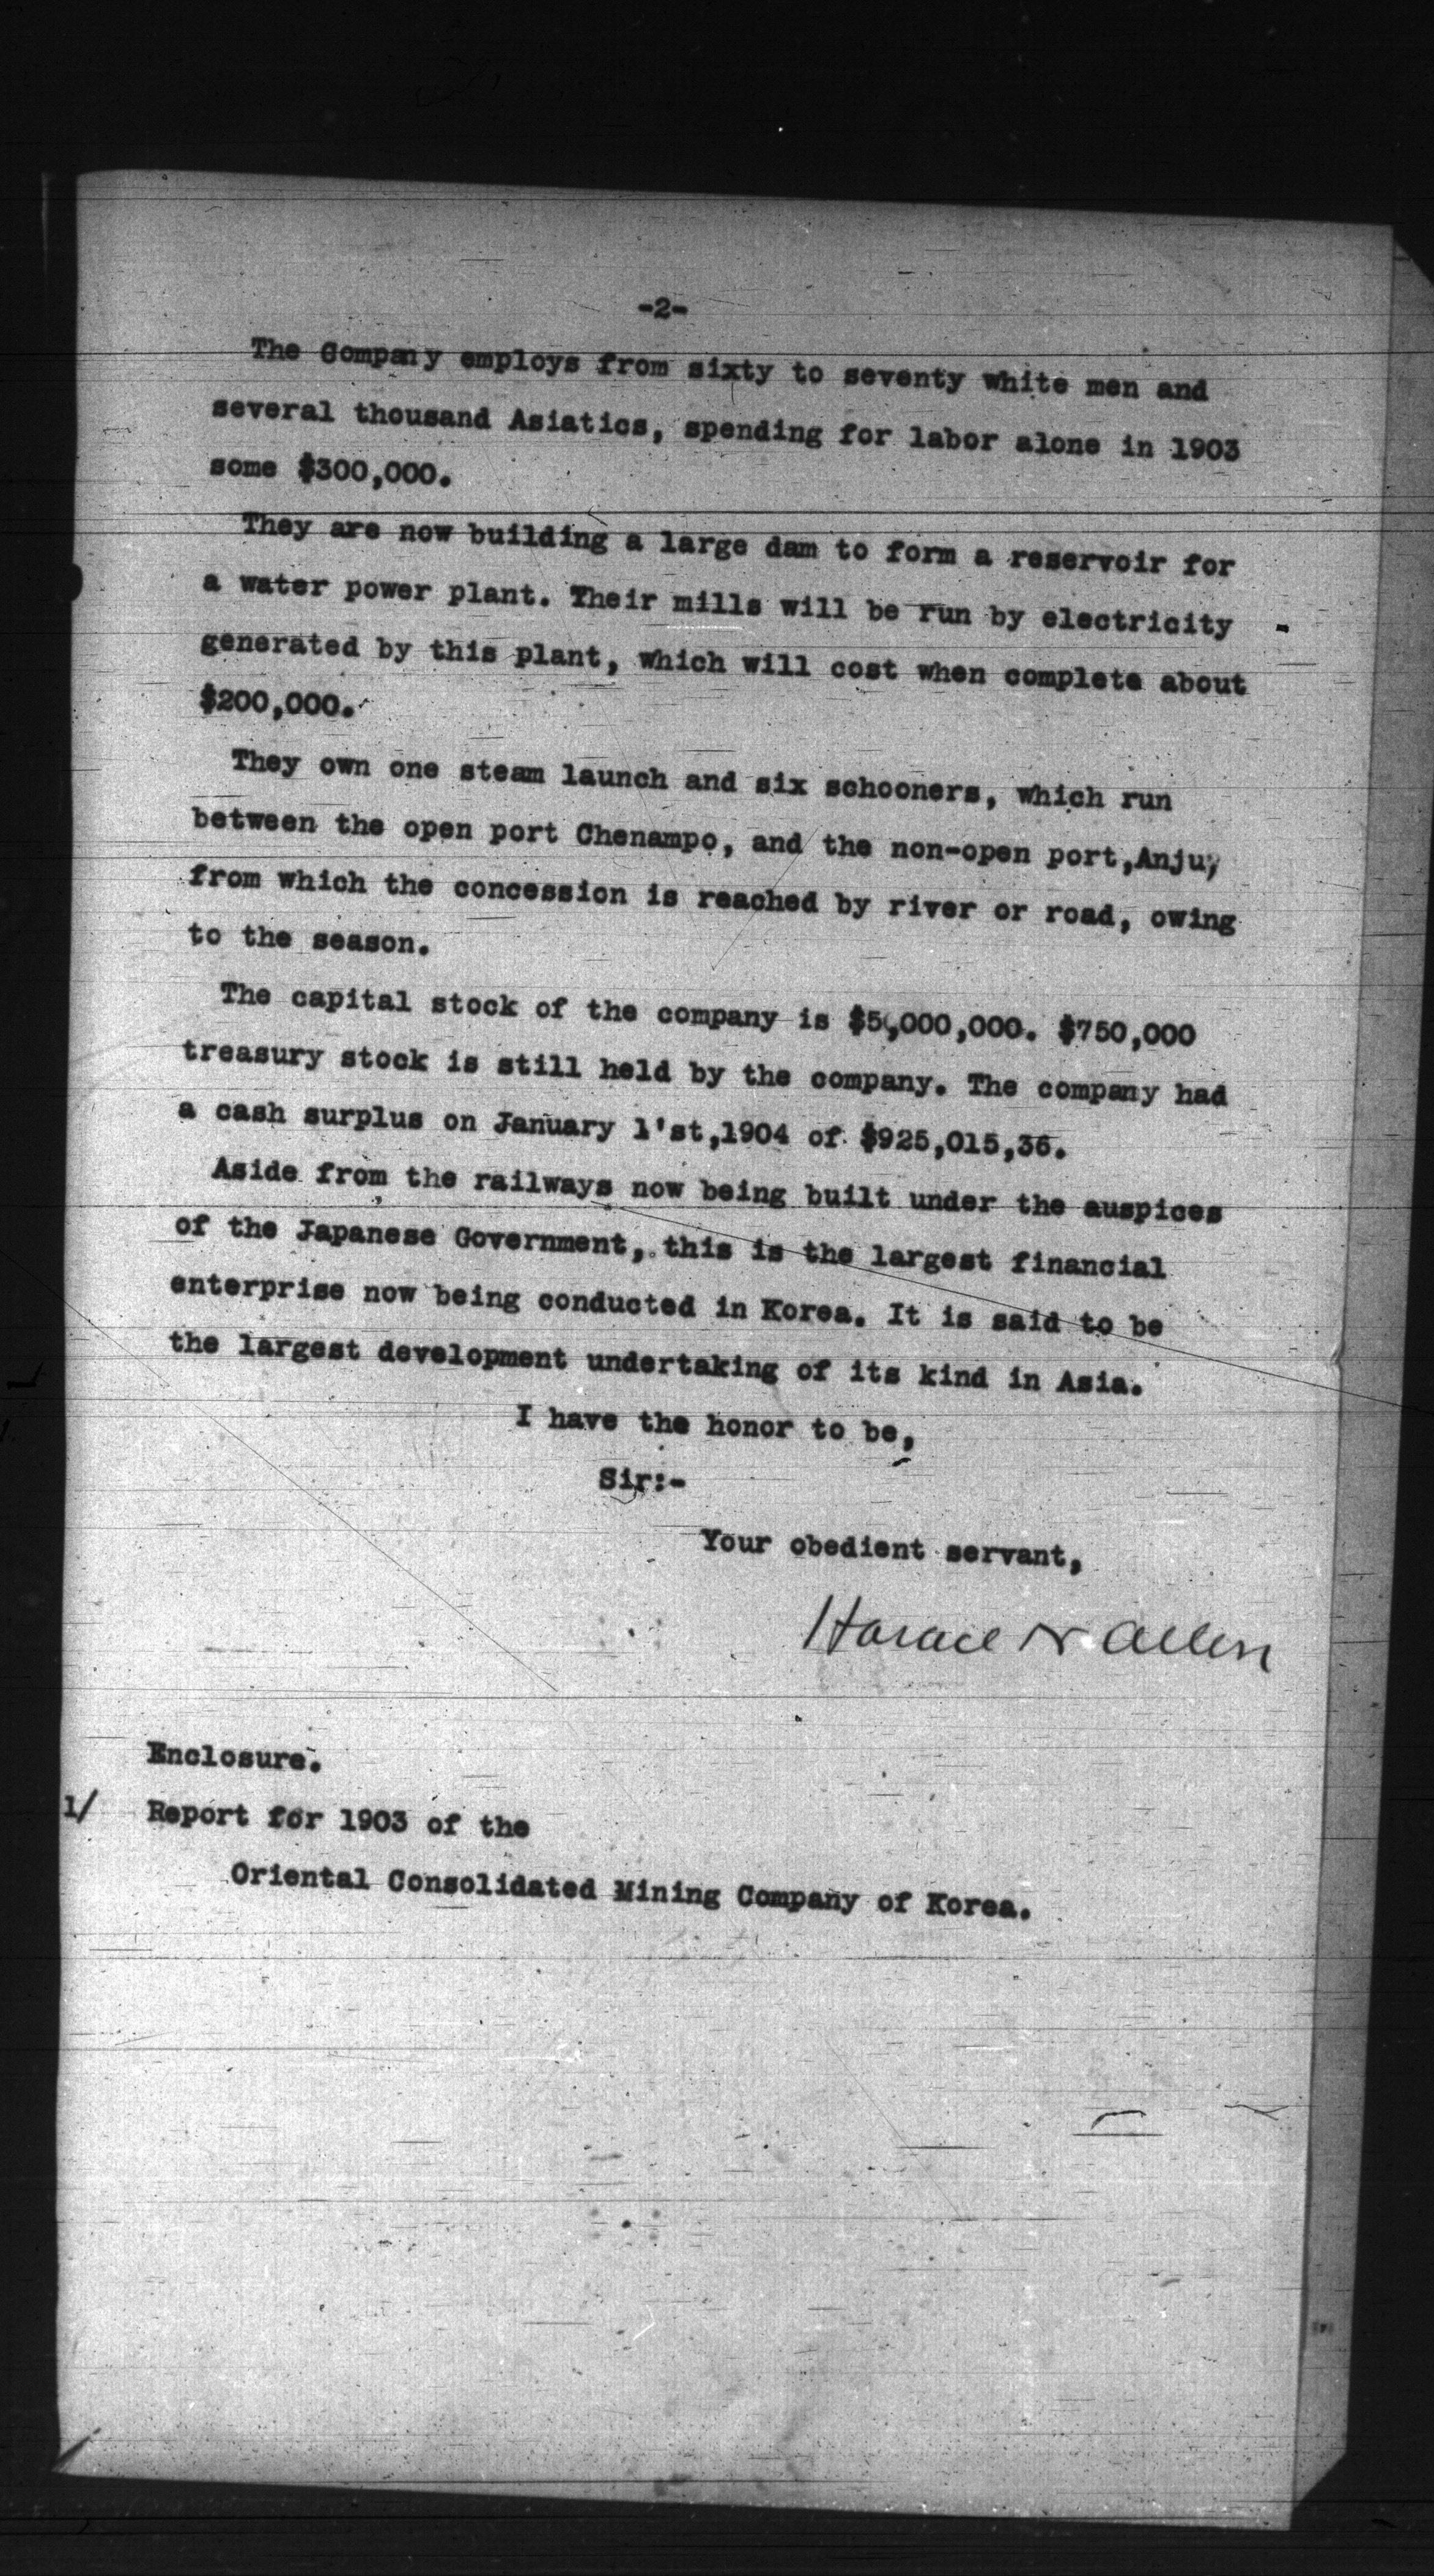 -2-
The Company employs from sixty to seventy white men and
several thousand Asiatics, spending for labor alone in 1903
some $300,000.
They are now building a large dam to form a reservoir for
a water power plant. Their mills will be run by electricity
generated by this plant, which will cost when complete about
$200,000.
They own one steam launch and six schooners, which run
between the open port Chenampo, and the non-open port,Anju,
from which the concession is reached by river or road, owing
to the season.
The capital stock of the company is $5,000,000. $750,000
treasury stock is still held by the company. The company had
a cash surplus on January 1'st,1904 of $925,015,36.
Aside from the railways now being built under the auspices
of the Japanese Government, this is the largest financial
enterprise now being conducted in Korea. It is said to be
the largest development undertaking of its kind in Asia.
I have the honor to be,
Sir:-
Your obedient servant,
Horace N Allen
Enclosure.
1/ Report for 1903 of the
Oriental Consolidated Mining Company of Korea.